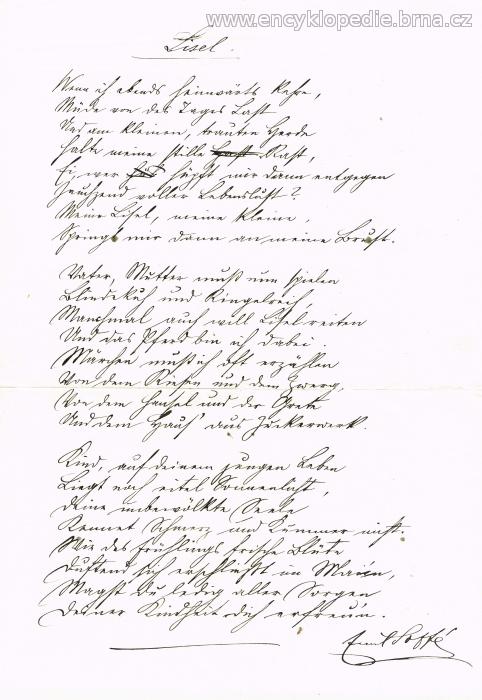 www.encyklopedie.brna.cz
Lisel.
Wenn ich abends heimwärts kehre,
Müde von des Tages Last
Und am kleinen, trauten Herde
Halte meine stille Rast,
Ei wer hüpft mir dann entgegen
Jauchzend voller Lebenslust?
Meine Lisel, meine Kleine,
Springt mir dann an meine Brust.
Vater, Mutter muß nun spielen
Blindekuh und Ringelreih',
Manchmal auch will Lisel reiten
Und das Pferd bin ich dabei.
Märchen muß ich oft erzählen
Von dem Riesen und dem Zwerg,
Von dem Hansel und der Grete
Und dem Haus' aus Zuckerwerk.
Kind, auf deinem jungen Leben
Liegt noch eitel Sonnenlicht,
Deine unbewölkte Seele
Kennet Schmerz und Kummer nicht.
Wie des Frühlings frische Blüte
Duftend sich erschließt im Maien,
Magst Du ledig aller Sorgen
Deiner Kindheit dich erfreun.
Emil Soffé